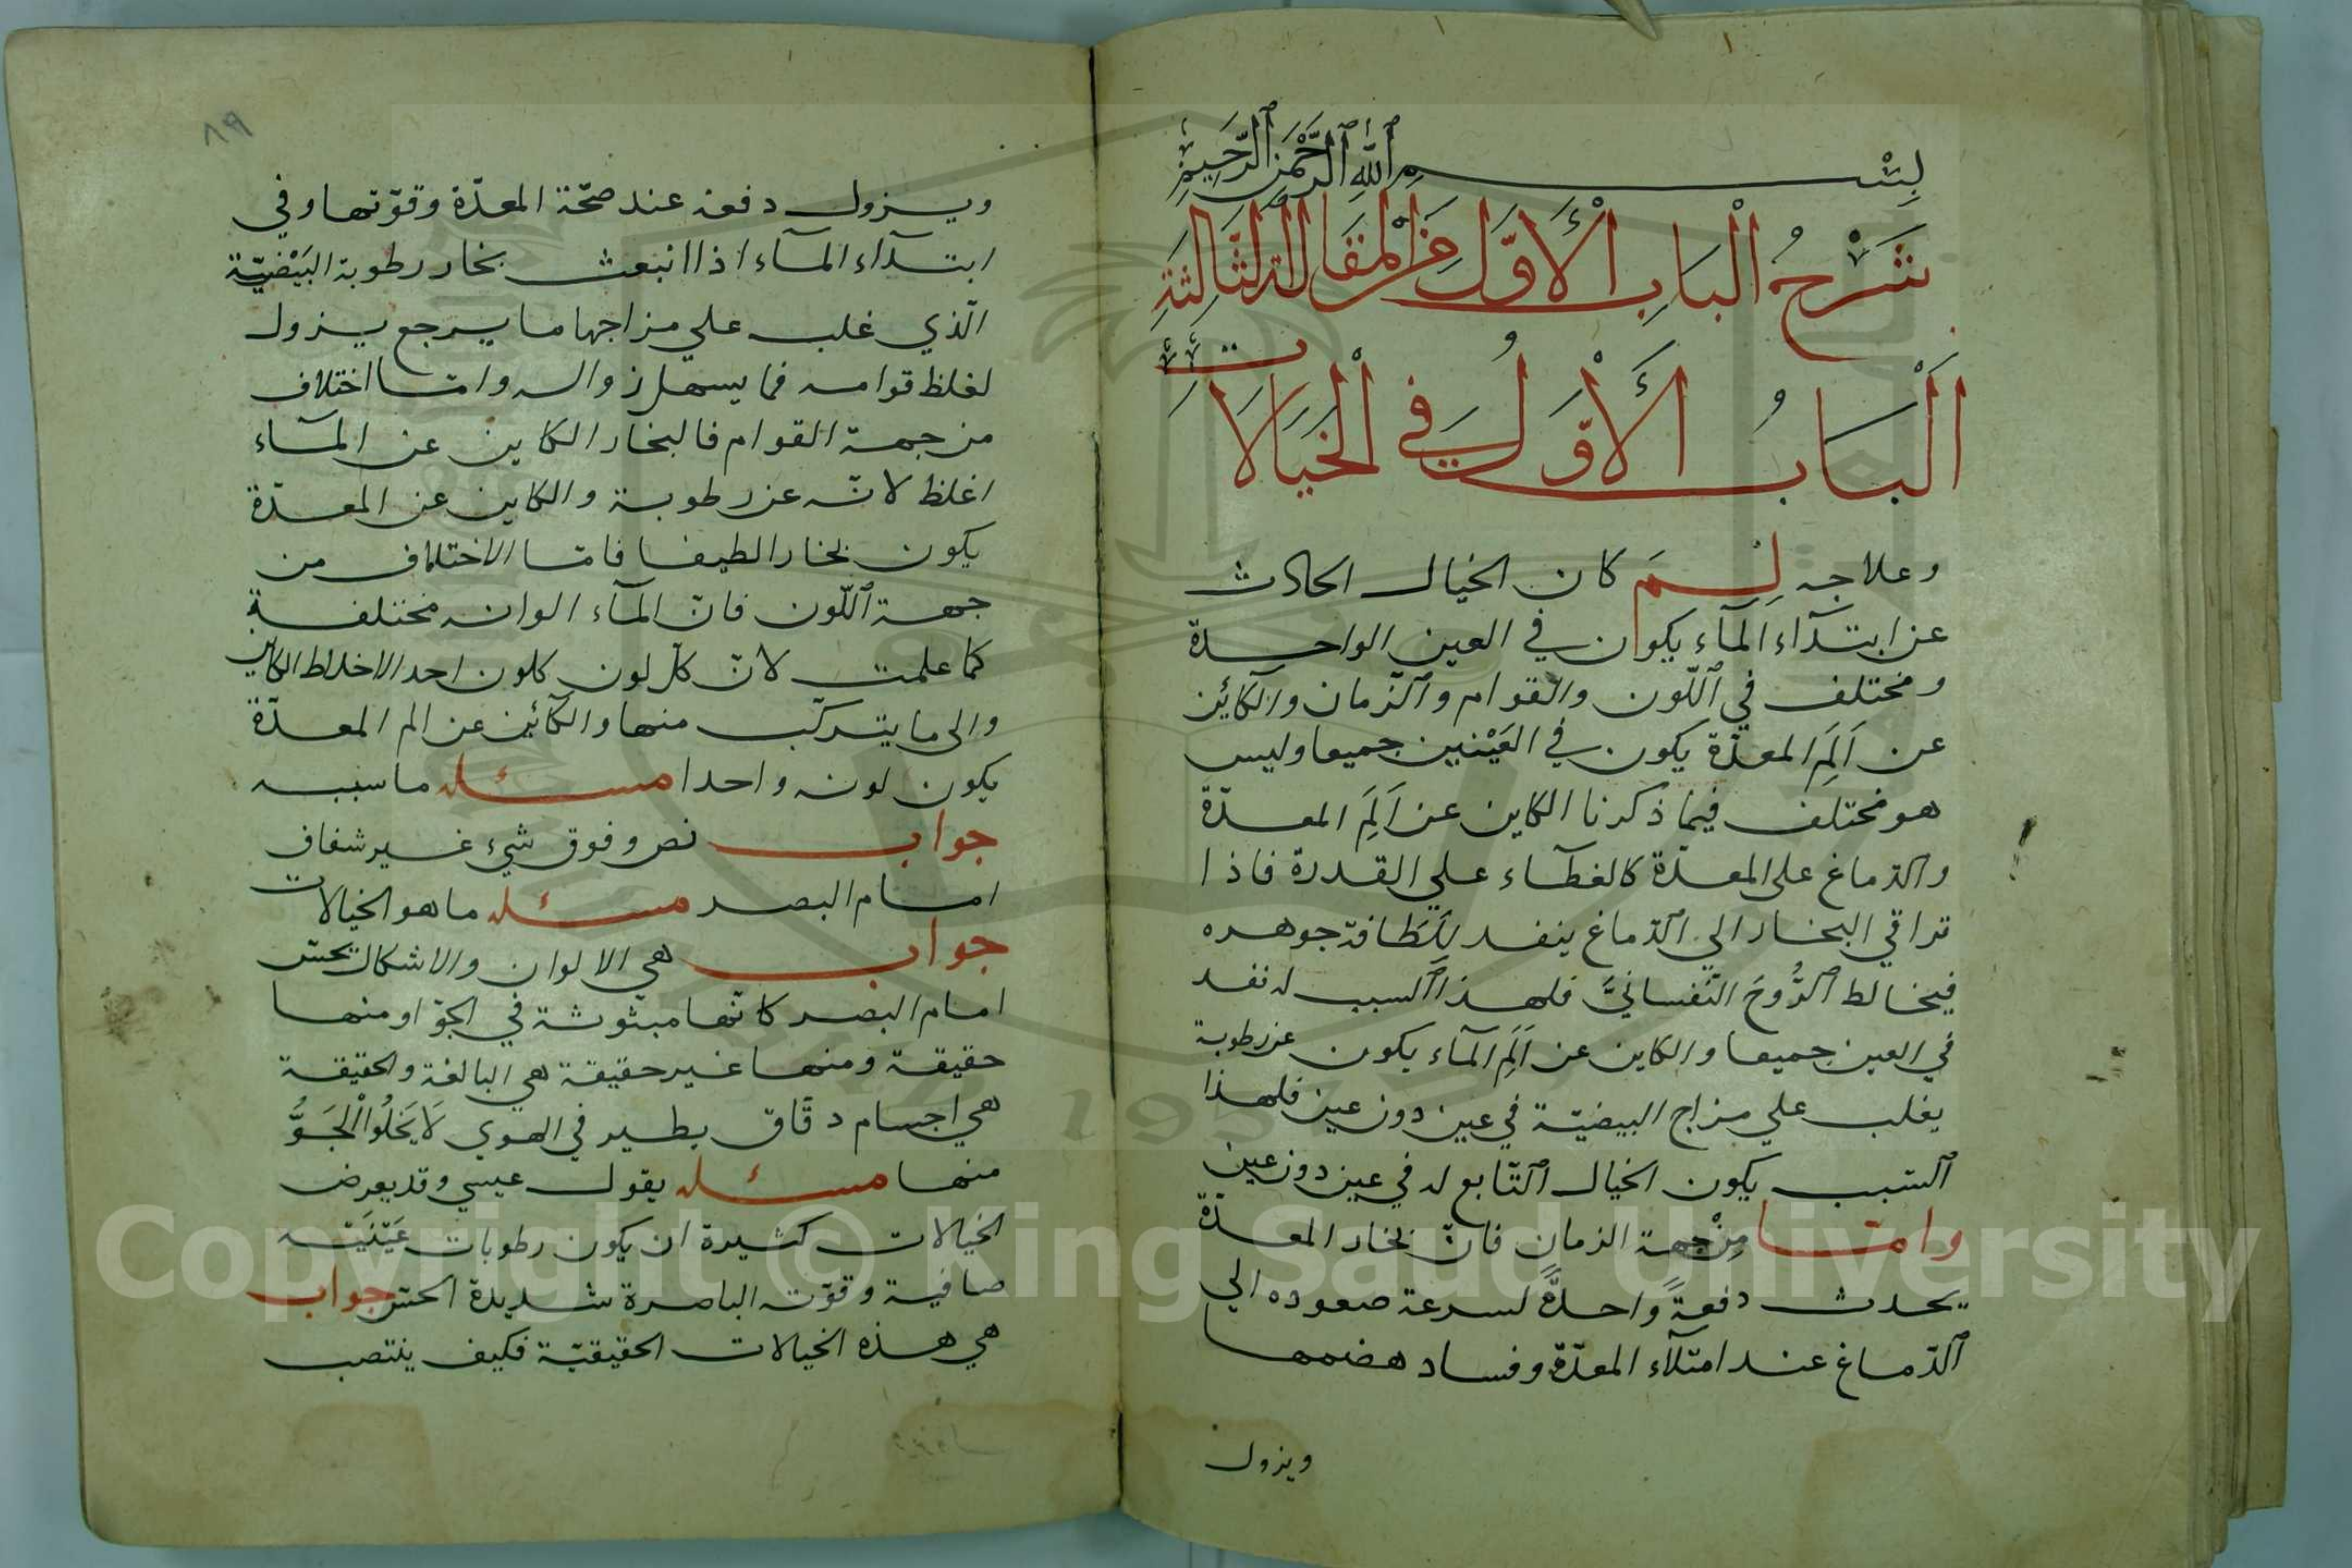 بِسْمِ اللّٰهِ الرَّحْمٰنِ الرَّحِيمِ
شَرْحُ الْبَابِ الْأَوَّلِ مِنَ الْمَقَالَةِ الثَّالِثَةِ
اَلْبَابُ الْأَوَّلُ فِي الْخَيَالَاتِ
وعلاجه لِمَ كان الخيال الحادث
عن ابتدآء المآء يكون في العين الواحدة
ومختلف في اللّون والقوام والزّمان والكائن
عن اَلَمِ المعدّة يكون في العَيْنين جميعا وليس
هو مختلف فيما ذكرنا الكاين عن اَلَمِ المعدّة
والدّماغ على المعدّة كالغطآء علي القدرة فاذا
تراقي البخار الي الدّماغ ينفد بلَطَافة جوهره
فيخالط الرُّوحَ النّفسانيَّ فلهذا السبب له نفد
في العين جميعا والكاين عن اَلَمِ المآء يكون عن رطوبة
يغلب علي مزاج البيضيّة في عين دون عين فلهذا
السّبب يكون الخيال التّابع له في عين دون عين
وامّا مِنْ جهة الزمان فانّ بخار المعدّة
يحدث دفعةً واحدةً لسرعة صعوده الي
الدّماغ عند امتلآء المعدّة وفساد هضمها
ويزول
٨٩
ويزول دفعة عند صحّة المعدّة وقوّتها وفي
ابتدآء المآء اذا انبعث بخار رطوبة البَيْضيّة
الّذي غلب علي مزاجها ما يرجع يزول
لغلظ قوامه فما يسهل زواله وامّا اختلاف
من جهة القوام فالبخار الكاين عن المآء
اغلظ لانّه عن رطوبة والكاين عن المعدّة
يكون بخارا لطيفا فامّا الاختلاف من
جهة اللّون فانّ المآء الوانه مختلفة
كما علمت لانّ كلّ لون كلون احد الاخلاط الكاين
والى ما يتركّب منها والكآئين عن الم المعدّة
يكون لونه واحدا مسئله ما سببه
جواب نص وفوق شيء غير شفاف
امام البصر مسئله ما هو الخيالات
جواب هي الالوان والاشكال يحسّ
امام البصر كانّها مبثوثة في الجوّ او منها
حقيقة ومنها غير حقيقة هي البالغة والحقيقة
هي اجسام دقَاق يطير في الهوي لَا يَخلُوا الْجَوُّ
منها مسئله يقول عيسي وقد يعرض
الخيالات كثيرة ان يكون رطوبات عَيْنَيْه
صافية وقوّته الباصرة شديدة الحسّ جواب
هي هذه الخيالات الحقيقيّة فكيف ينتصب
Copyright © King Saud University